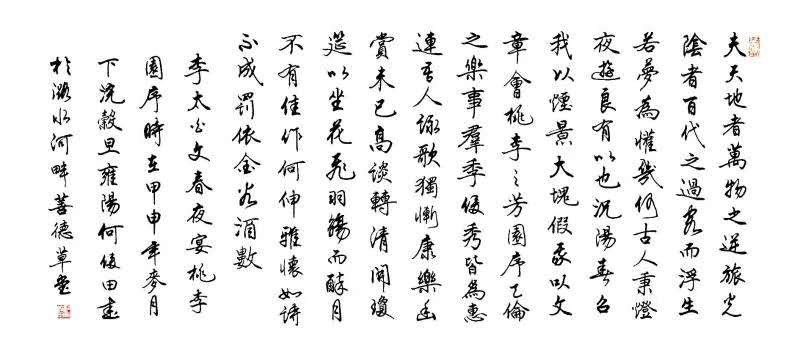 夫天地者萬物之逆旅光
陰者百代之過客而浮生
若夢為懽幾何古人秉燈
夜遊良有以也況陽春召
我以煙景大塊假我以文
章會桃李之芳園序天倫
之樂事羣季俊秀皆為惠
連吾人詠歌獨慚康樂幽
賞未已高談轉清開瓊
筵以坐花飛羽觴而醉月
不有佳作何伸雅懷如詩
不成罰依金谷酒數
李太白文春夜宴桃李
園序時在甲申年麥月
下浣穀旦雍陽何俊田書
於潞水河畔菩德草堂